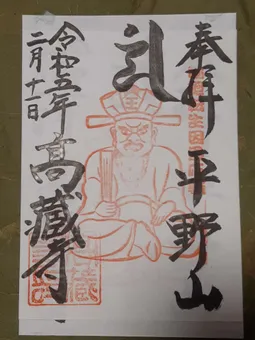 奉拝 平野山
王
令和五年
二月十一日
高藏寺